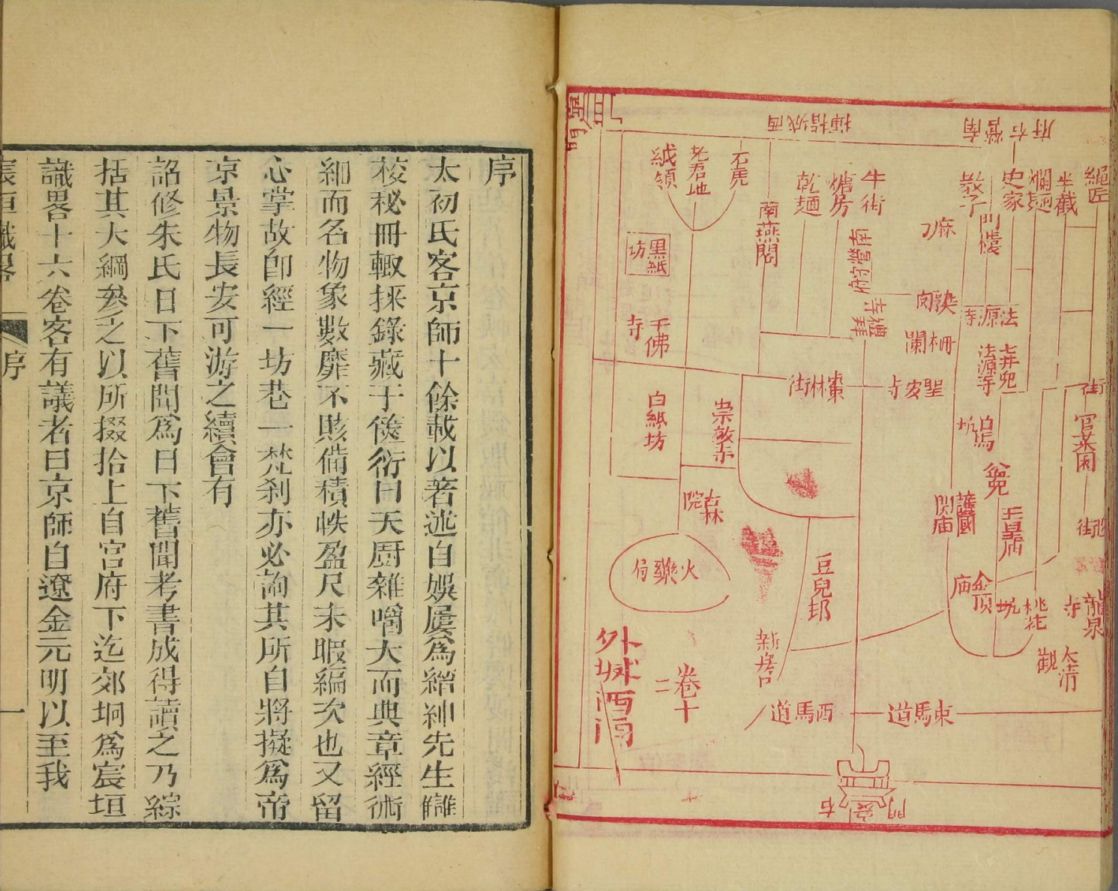 序
太初氏客京師十餘載以著述自娛屢爲縉紳先生讎
校秘冊輙採錄藏于篋衍曰天厨雜嚼大而典章經術
細而名物象數靡不賅備積帙盈尺未暇編次也又留
心掌故卽經一坊巷一梵刹亦必詢其所自將擬爲帝
京景物長安可游之續會有
詔修朱氏日下舊聞爲日下舊聞考書成得讀之乃綜
括其大綱參之以所掇拾上自宮府下迄郊坰爲宸垣
識畧十六卷客有議者曰京師自遼金元明以至我
宸垣識畧
序
一
西城指揮
南營右府
繩匠
半截
爛麵
史家
教子
門樓
麻刀
牛街
熗房
乾麵
石虎
老君地
絨領
南燕閣
南營府
黑紙坊
千佛寺
禮拜寺
熟肉
法源寺
柵欄
七井兒
法源寺
聖安寺
棗林街
街
白紙坊
崇效寺
官菜園
白馬坑
護國關庙
玉皇庙
火藥局
豆兒坑
金頂庙
桃花坑
龍泉寺
太清觀
外城西南
卷十二
東馬道
西馬道
右安門